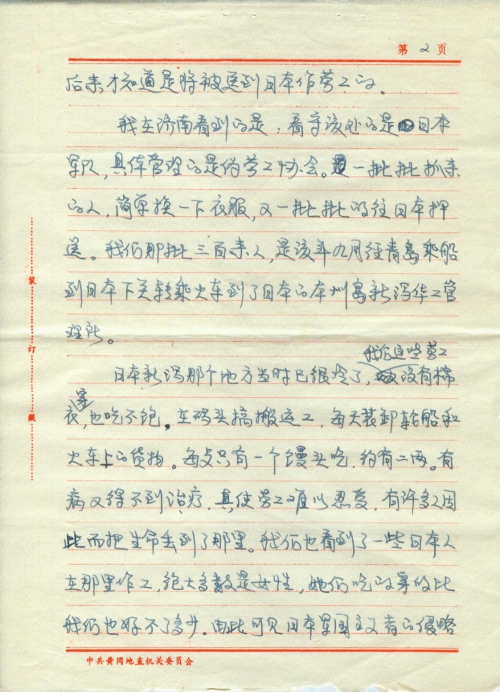 第 2 页
后来才知道是将被送到日本作劳工的。
我在济南看到的是，看守该处的是日本
军队，具体管理的是伪劳工协会。一批批抓来
的人，简单换一下衣服，又一批批的往日本押
送。我们那批三百来人，是该年九月往青岛乘船
到日本下关转乘火车到了日本的本州岛新泻华工管
理所。
我们这些劳工
日本新泻那个地方当时已很冷了，没有棉
穿
衣，也吃不饱。在码头搞搬运工，每天装卸轮船和
火车上的货物。每头只有一个馒头吃，约有二两。有
病又得不到治疗，真使劳工难以忍受，有许多人因
此而把生命丢到了那里。我们也看到了一些日本人
在那里作工，绝大多数是女性，她们吃的穿的比
我们也好不了多少。由此可见日本军国主义者的侵略
装
订
线
中共黄冈地直机关委员会